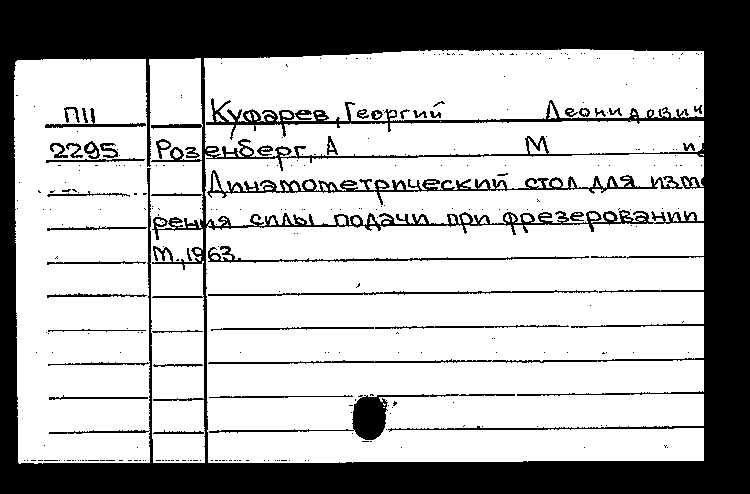 П11 Куфарев, Георгий Леонидович
2295 Розенберг, А М
Динамометрический стол для изме
рения силы подачи при фрезеровании
М., 1963.